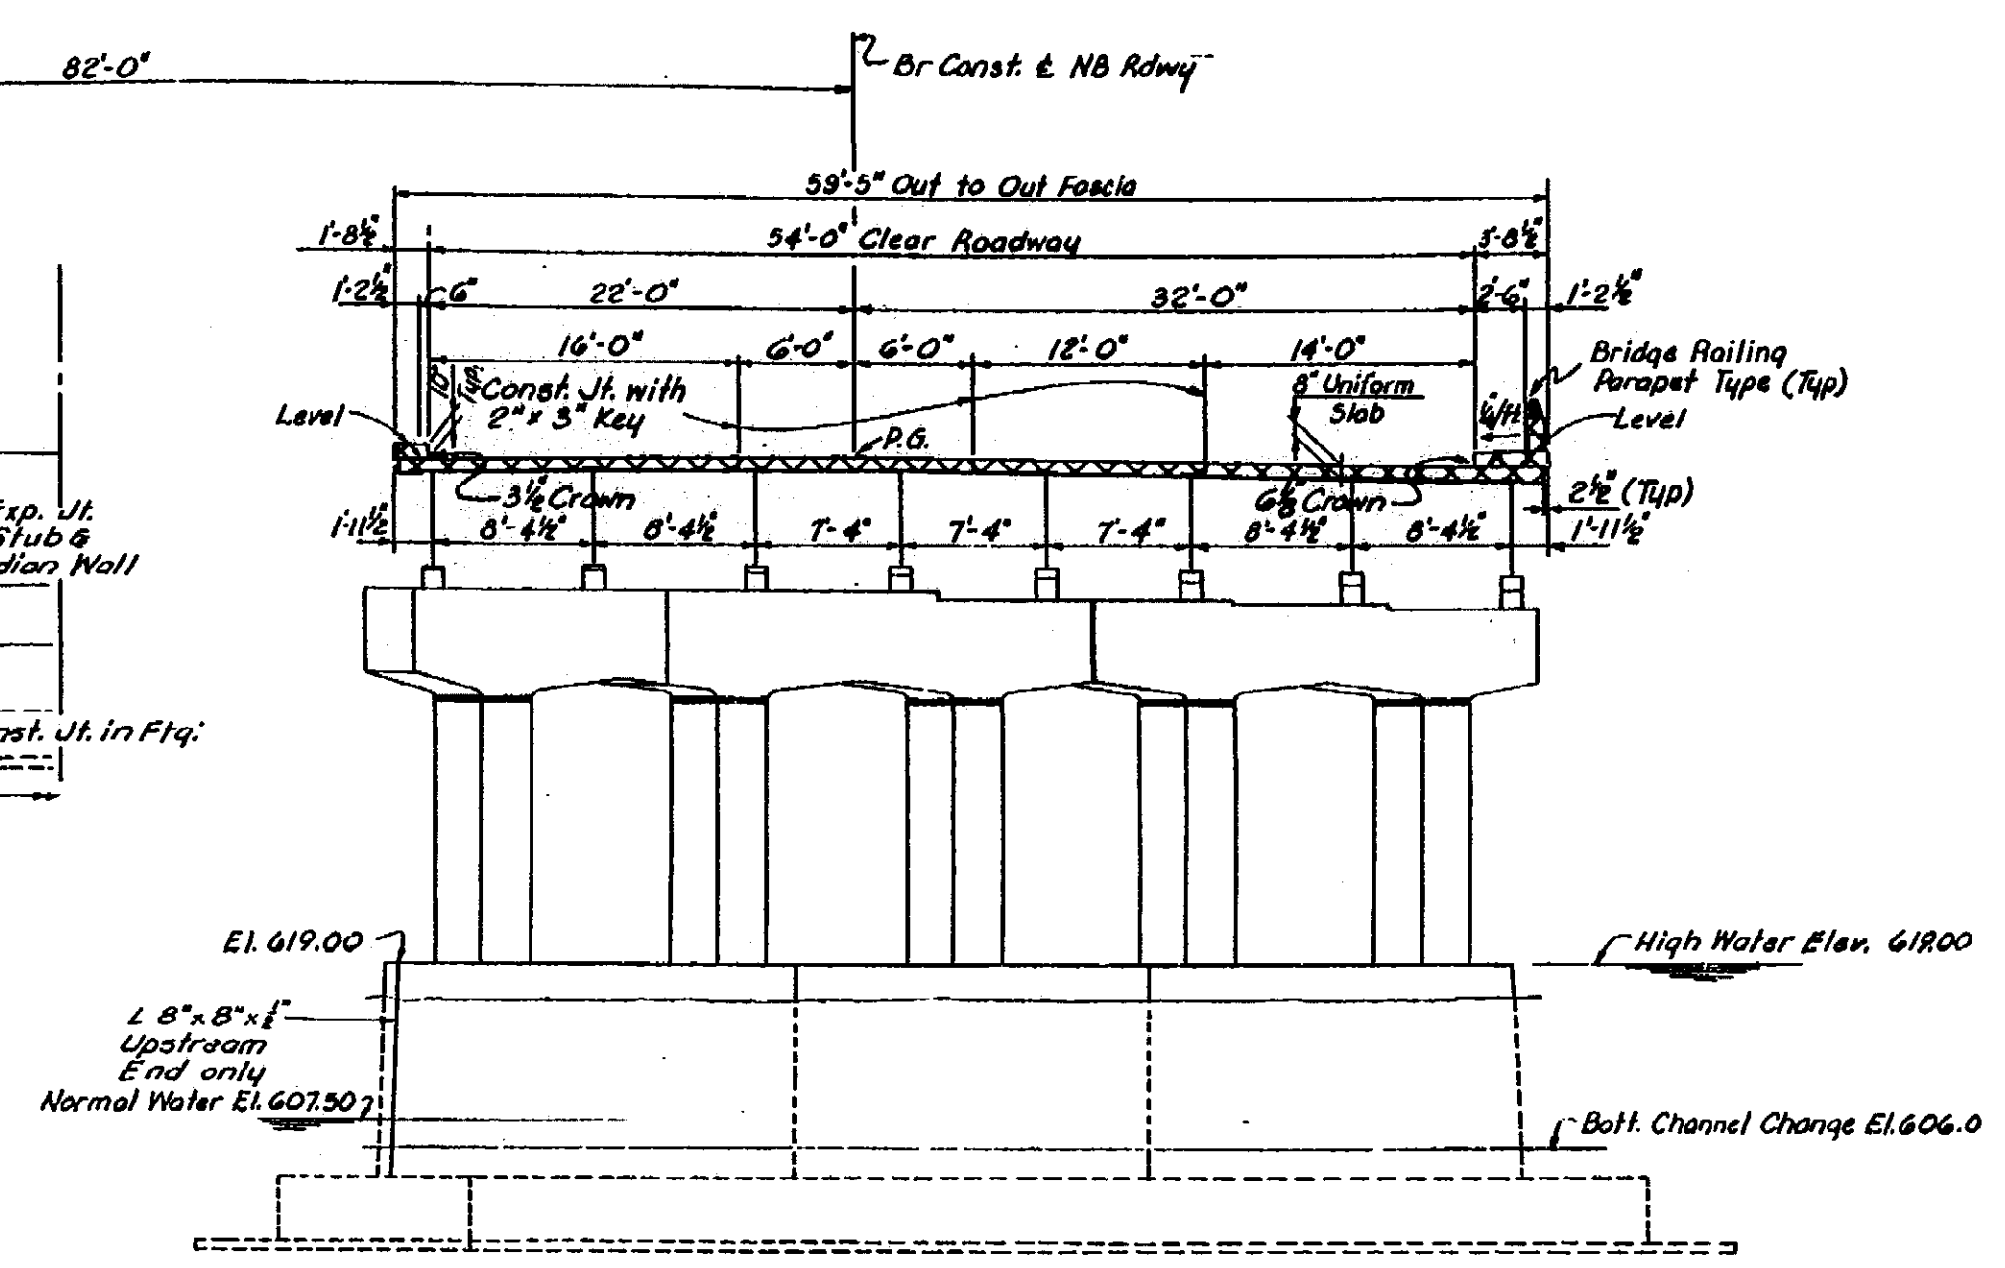 82'-0"
Br Const. ℄ NB Rdwy
59'-5" Out to Out Fascia
1'-8½"
54'-0" Clear Roadway
3'-8½"
1'-2½"
6"
22'-0"
32'-0"
2'-6"
1'-2½"
16'-0"
6'-0"
6'-0"
12'-0"
14'-0"
Bridge Railing
Parapet Type (Typ)
10"
Typ.
Const. Jt. with
2" x 3" Key
8" Uniform
Slab
¼"/ft
Level
Level
P.G.
3½" Crown
Crown
2½" (Typ)
1'-11½"
8'-4½"
8'-4½"
7'-4"
7'-4"
7'-4"
8'-4½"
8'-4½"
1'-11½"
Exp. Jt.
Stub &
dian Wall
nst. Jt. in Ftg.
El. 619.00
High Water Elev. 619.00
L 8" x 8" x ½"
Upstream
End only
Normal Water El. 607.50
Bott. Channel Change El. 606.0